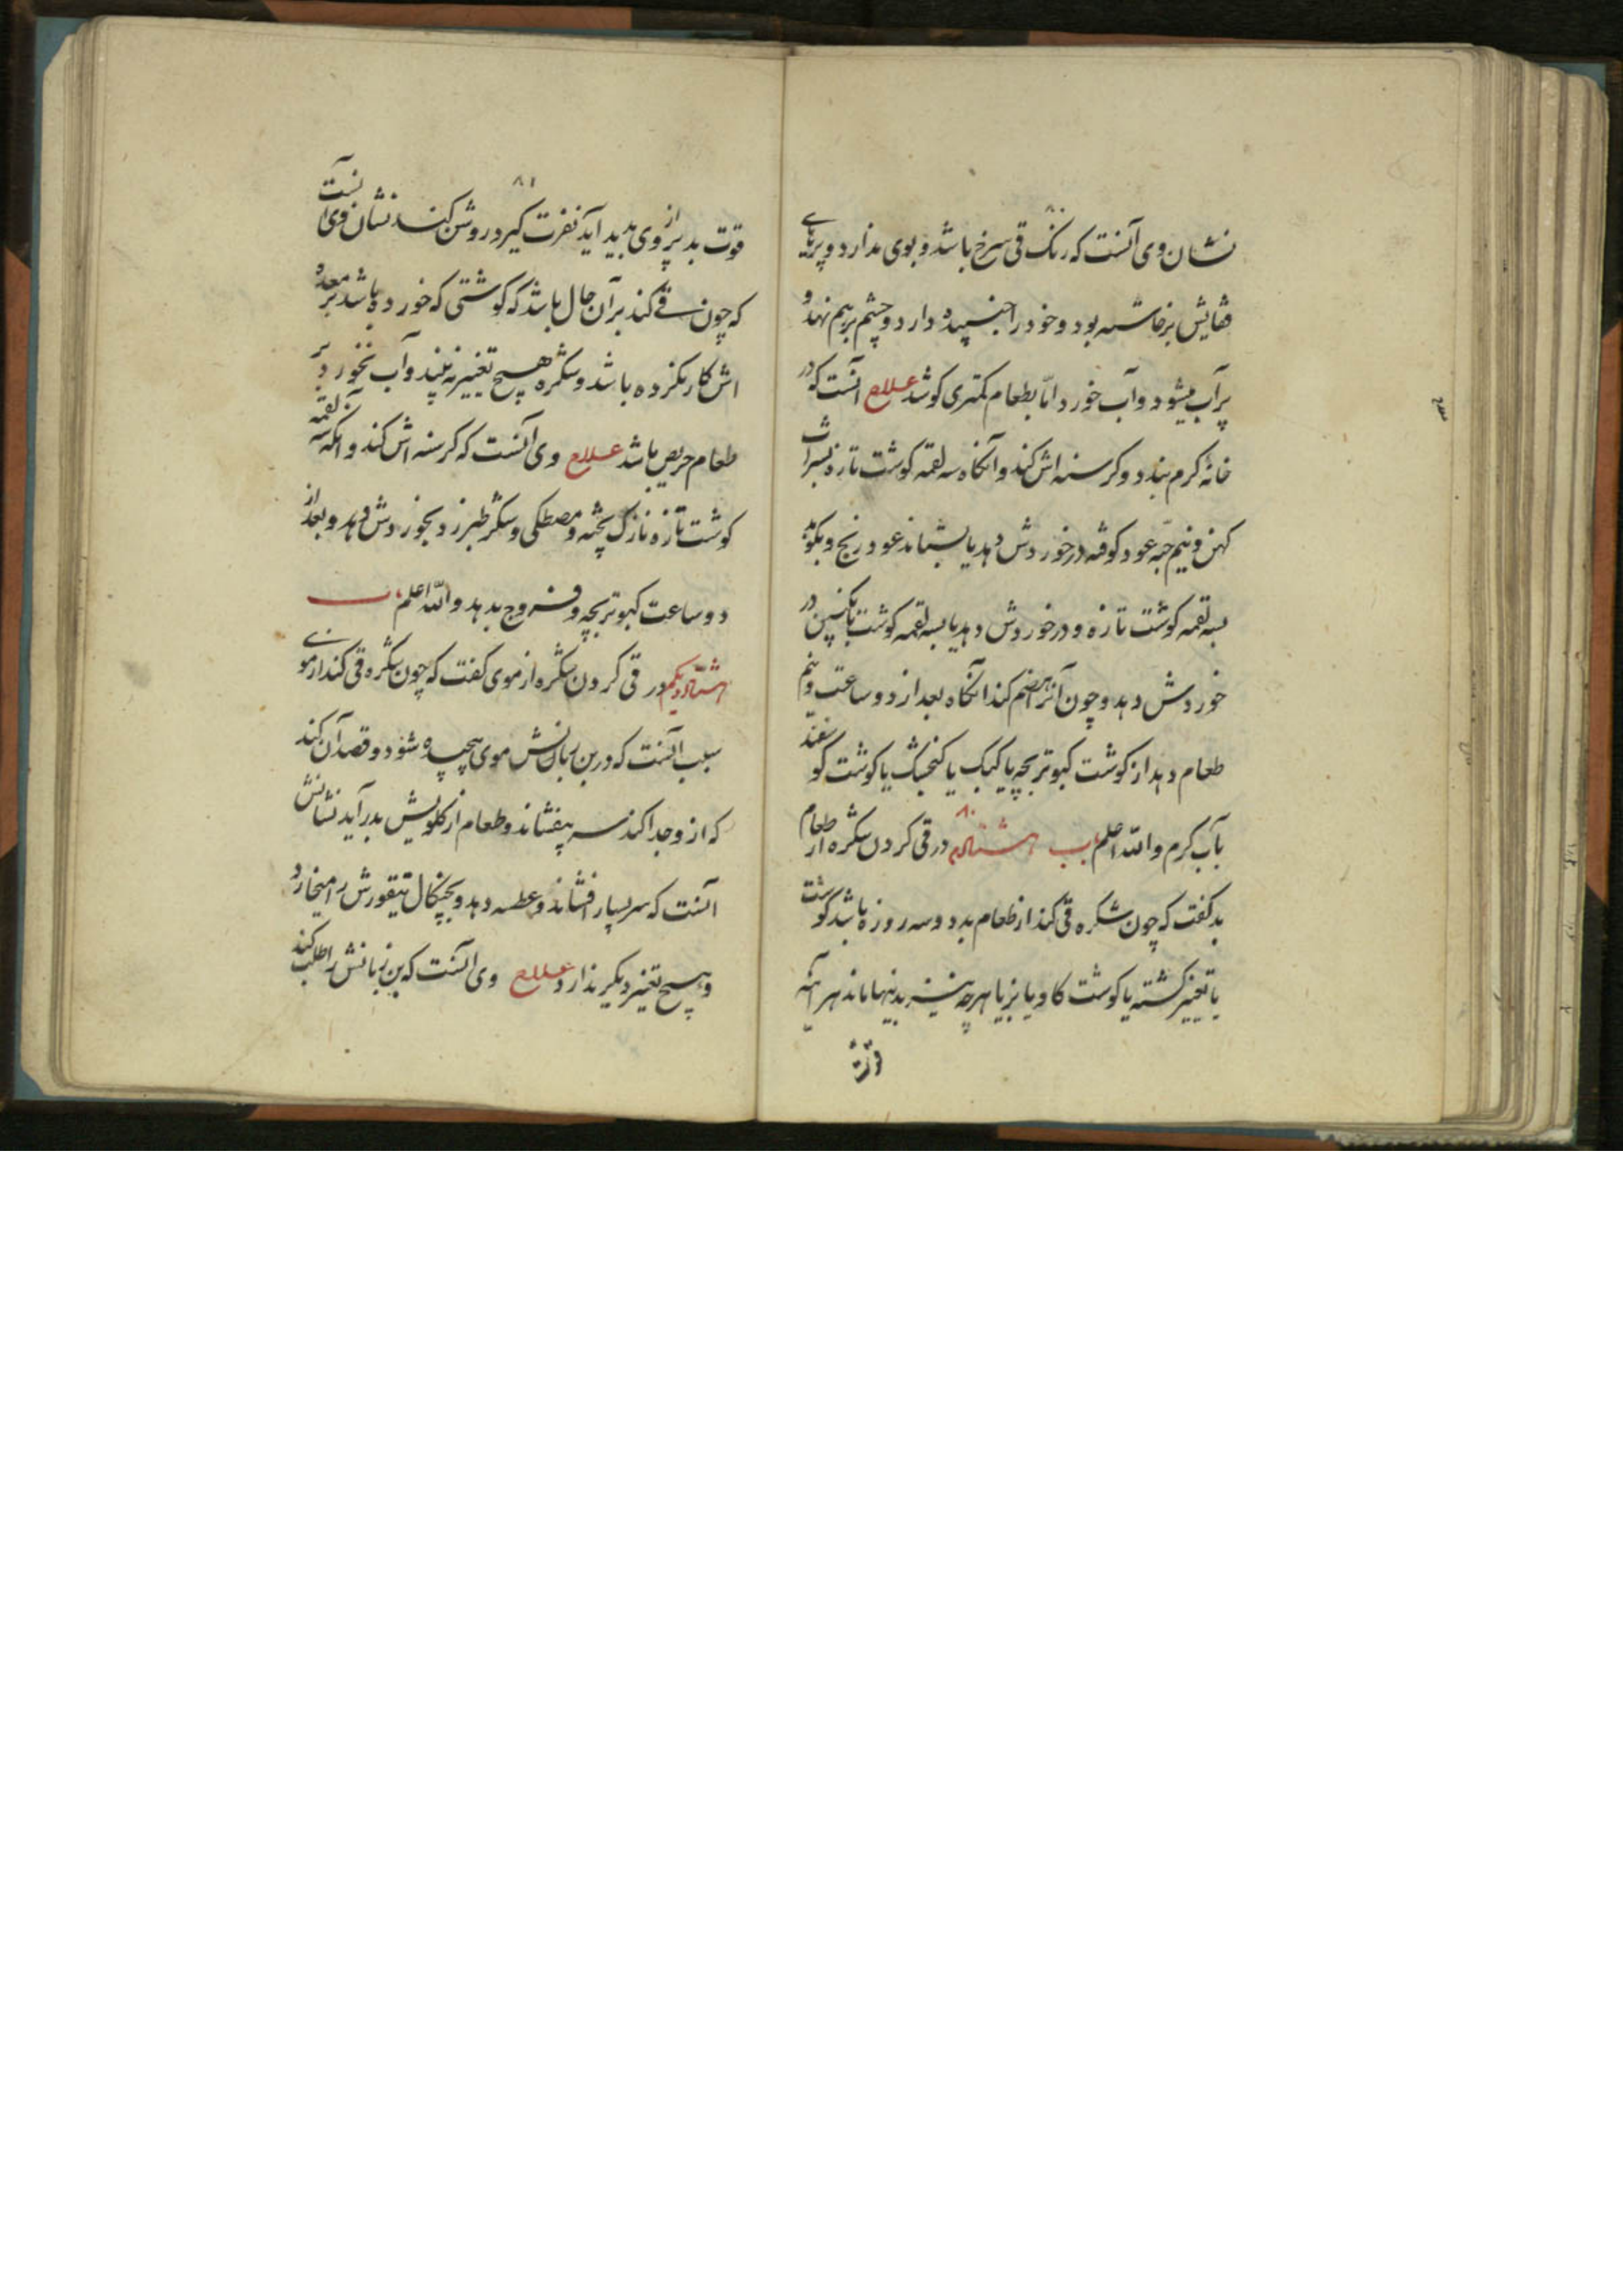 ۸۰
نشان وی آنست که رنگ قی سرخ باشد و بوی ندارد و پرهای
هایش برخاسته بود و خود را خنسپیده دارد و چشم برهم نهد و
پرآب میشود و آب خورد اما بطعام کمتری کوشد علاج آنست که در
خانهٔ کرم بندد و کرسنه اش کند و آنکاه سه لقمه کوشت تازه بشراب
کهن و نیم حبه عود کوفته در خوردش دهد یا بستاند عود و برنج و بکوبد
بسه لقمه کوشت تازه و در خوردش دهد یا بسه لقمه کوشت بانکبین در
خوردش دهد و چون آنرا هضم کند آنکاه بعد از دو ساعت و نیم
طعام دهد از کوشت کبوتر بچه یا کبک یا کنجشک یا کوشت کوسفند
بآب کرم والله اعلم باب هشتادم ۸۰ در قی کردن شکره از طعام
بد کفت که چون شکره قی کند از طعام بد دو سه روزه باشد کوشت
یا تغییر کشته یا کوشت کاو یا بز یا هرچه بدینها ماند هر آینه
قوت
۸۱
قوت بد بر وی پدید آید نفرت کیرد روشن کند نشان وی آنست
که چون قی کند بر آن حال باشد که کوشتی که خورده باشد بر معده
اش کار نکرده باشد و شکره هیچ تغییر نه بیند و آب نخورد بر
طعام حریص باشد علاج وی آنست که کرسنه اش کند و آنکه سه لقمه
کوشت تازه نازک پخته و مصطکی و شکر طبرزد بخوردش دهد و بعد از
دو ساعت کبوتر بچه و فروج بدهد والله اعلم باب
هشتاد و یکم در قی کردن شکره از موی کفت که چون شکره قی کند از موی
سبب آنست که در بن زبانش موی پیچیده شود و قصد آن کند
که از و جدا کند سر بیفشاند و طعام از کلویش بدر آید نشانش
آنست که سر بسیار افشاند و عطسه دهد و بچنکال تیقورش را میخارد و
و هیچ تغییر دیکر ندارد علاج وی آنست که بن زبانش را طلب کند